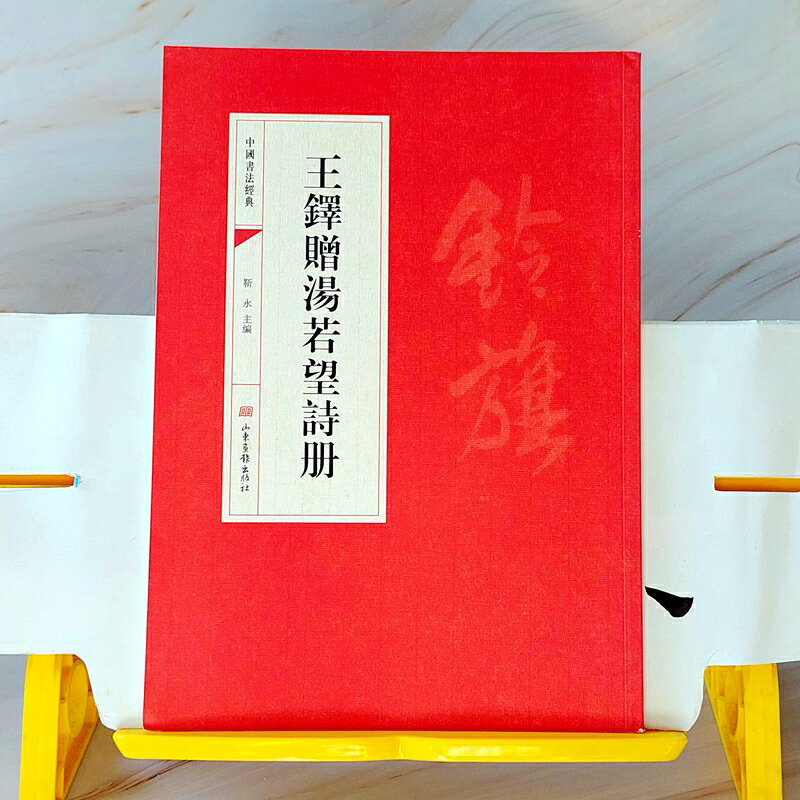 中國書法經典
靳永 主编
山东画报出版社
王鐸贈湯若望詩册
鈴旗